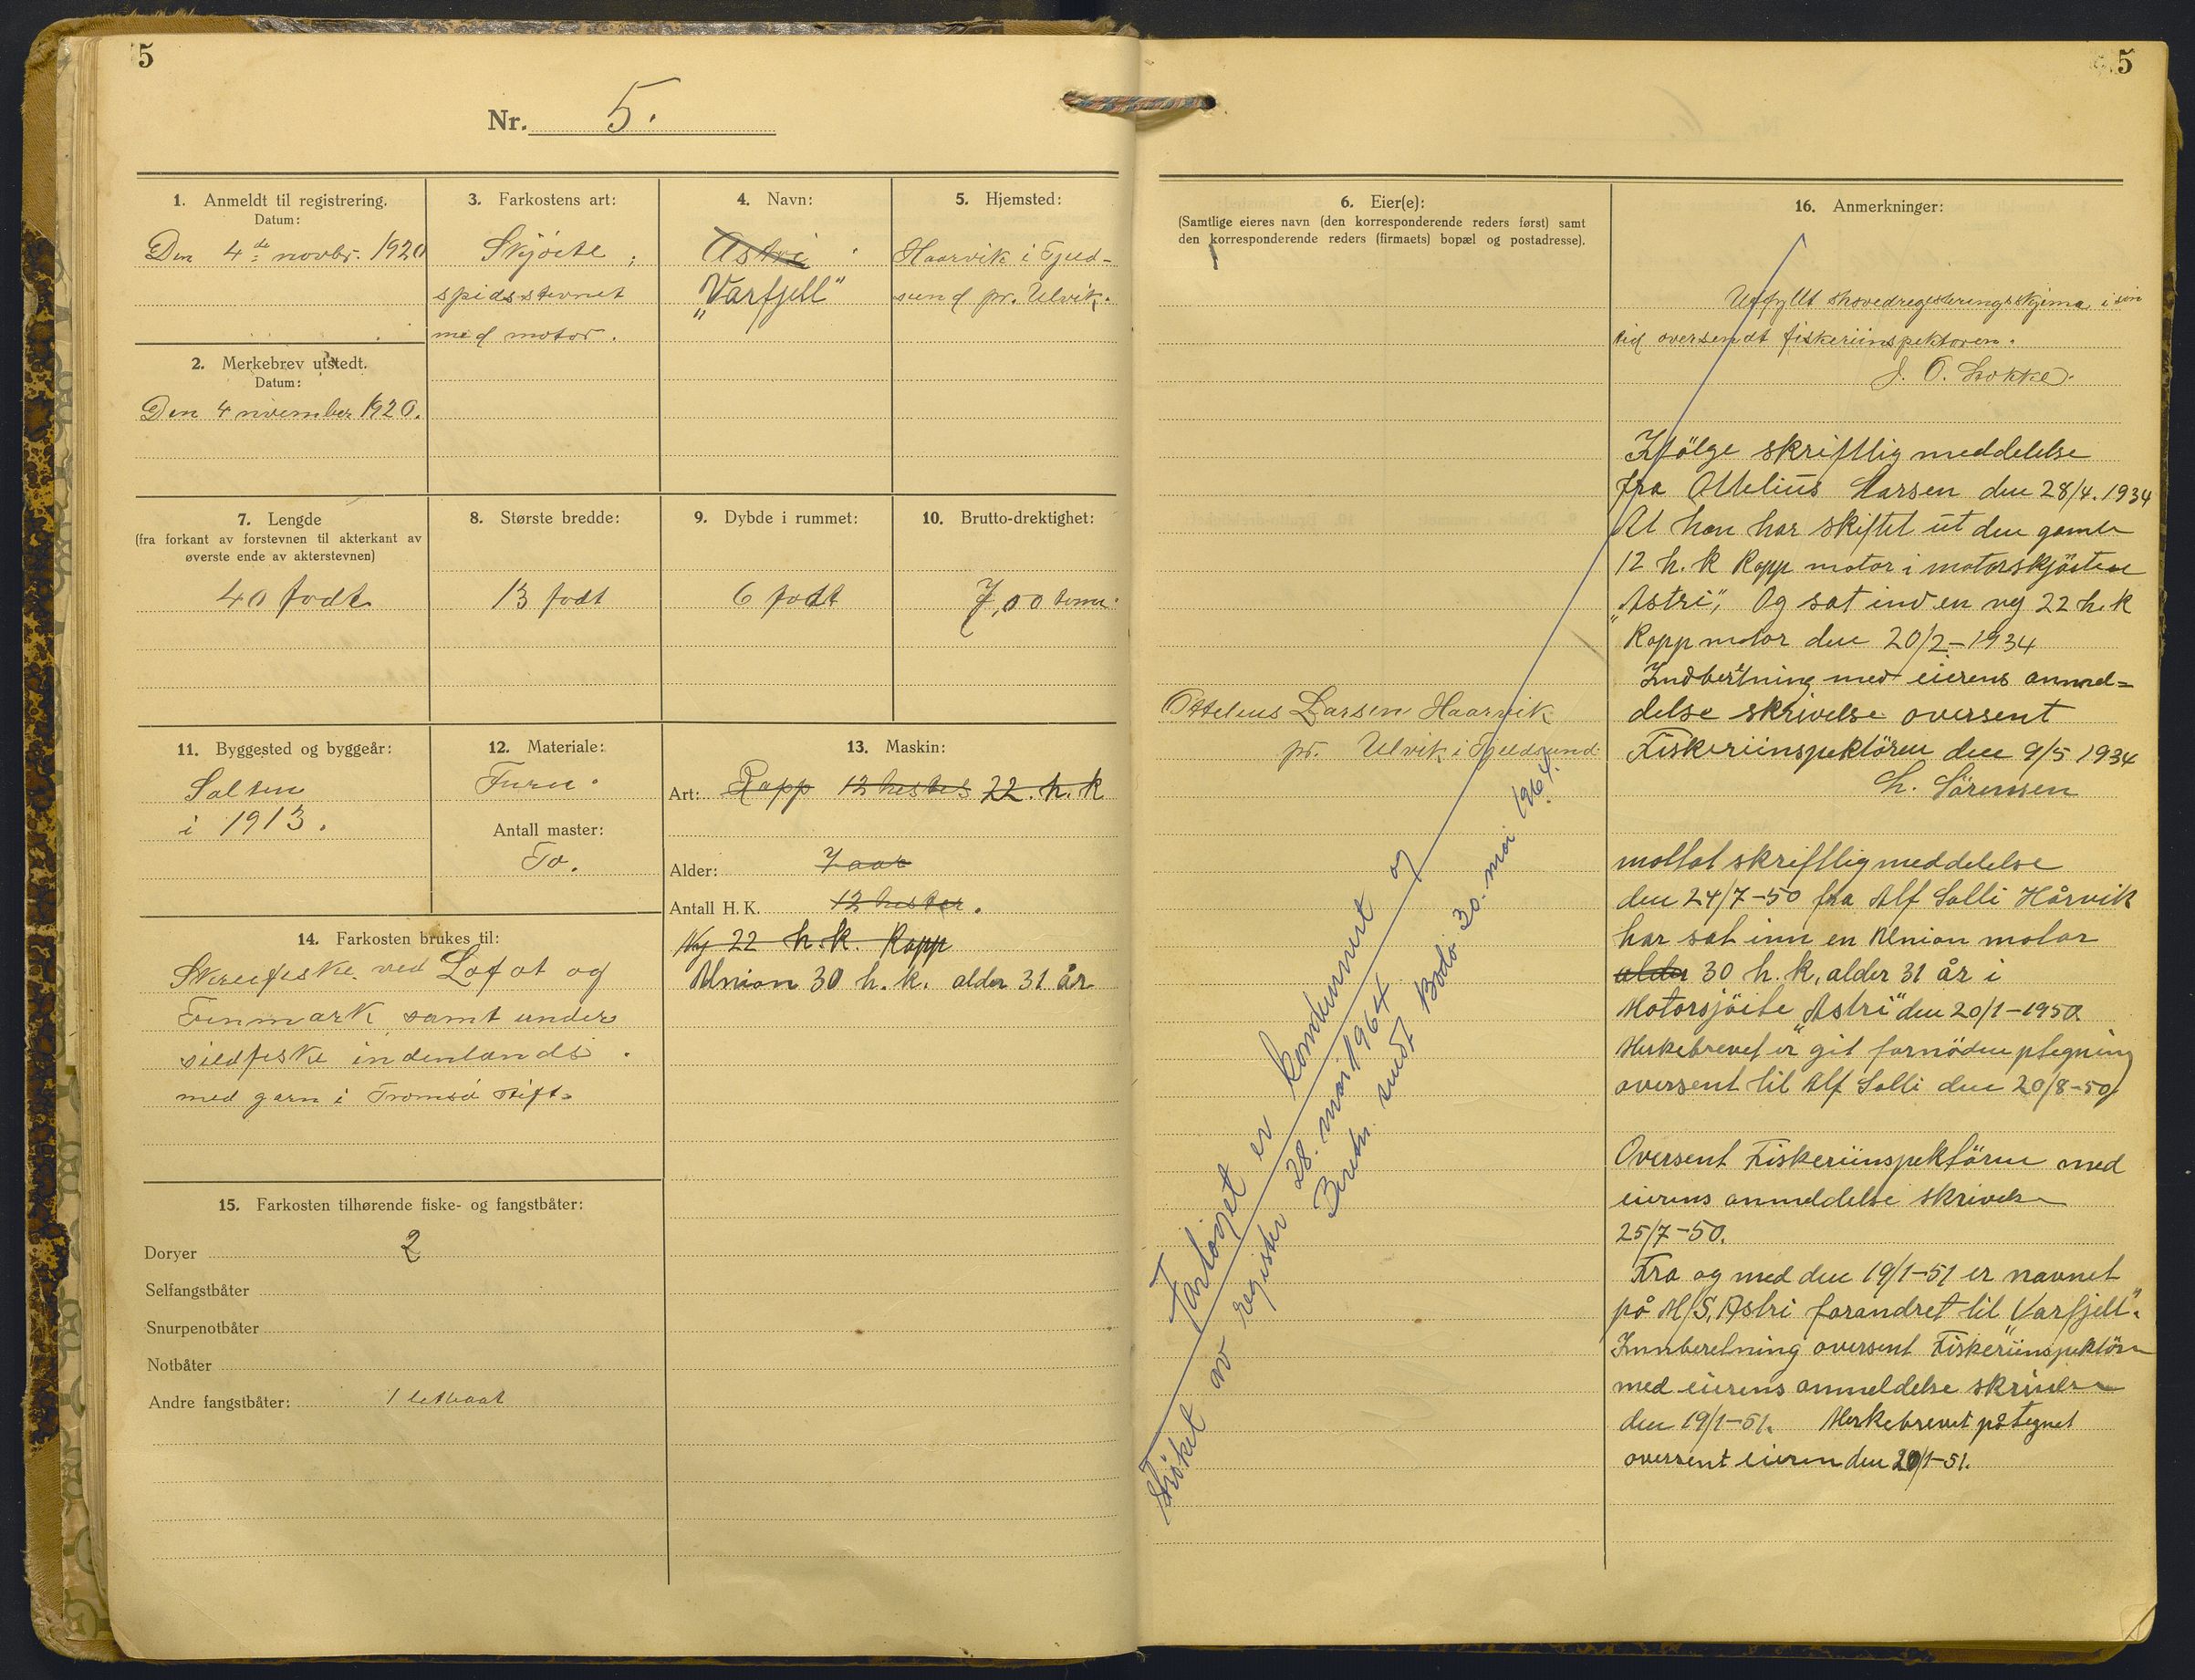 5
Nr. 5.
1. Anmeldt til registrering.
Datum:
Den 4de novbr. 1920
2. Merkebrev utstedt.
Datum:
Den 4 november 1920.
3. Farkostens art:
Skjöite,
spidsstevnet
med motor.
4. Navn:
Astri
"Varfjell"
5. Hjemsted:
Haarvik i Fjeld-
sund pr. Ulvik.
7. Lengde
(fra forkant av forstevnen til akterkant av
øverste ende av akterstevnen)
40 fodt
8. Største bredde:
13 fodt
9. Dybde i rummet:
6 fodt
10. Brutto-drektighet:
7,00 tonn.
11. Byggested og byggeår:
Salten
i 1913.
12. Materiale:
Furu.
Antall master:
To.
13. Maskin:
Art: Rapp 12 hesters 22. h. k
Alder: 7 aar
Antall H. K. 12 hester.
Ny 22 h. k. Rapp
Union 30 h. k. alder 31 år
14. Farkosten brukes til:
Skreifiske ved Lofot og
Finmark samt under
sildfiske indenlands.
med garn i Tromsö stift.
15. Farkosten tilhørende fiske- og fangstbåter:
Doryer 2
Selfangstbåter
Snurpenotbåter
Notbåter
Andre fangstbåter: 1 letbaat
5
6. Eier(e):
(Samtlige eieres navn (den korresponderende reders først) samt
den korresponderende reders (firmaets) bopæl og postadresse).
Ottelius Larsen Haarvik
pr. Ulvik i Fjeldsund.
Fartöyet er kondemnert og
strøket av register 28. mai 1964
Beretn. sendt Bodø 30. mai 1964.
16. Anmerkninger:
Utfyllt hovedregisteringsskjema i sin
tid oversendt fiskeriinspektøren.
J. O. Lokke.
Ifölge skriftlig meddelelse
fra Ottelius Larsen den 28/4. 1934
At han har skiftet ut den gamle
12 h. k Rapp motor i motorskjöiten
"Astri", Og sat ind en ny 22 h. k
Rapp motor den 20/2-1934
Indbertning med eierens anmel=
delse skrivelse oversent
Fiskeriinspektören den 9/5 1934
L. Sörensen
mottat skriftlig meddelelse
den 24/7-50 fra Alf Solli Hårvik
har sat inn en Union motor
alder 30 h. k, alder 31 år i
Motorsjöite "Astri" den 20/1-1950
Merkebrevet er git fornöden ptegning
oversent til Alf Solli den 20/8-50
Oversent Fiskeriinspektören med
eierens anmeldelse skrivelse
25/7-50.
Fra og med den 19/1-51 er navnet
på M/S, Astri forandret til "Varfjell".
Innberetning oversent Fiskeriinspektören
med eierens anmeldelse skrivelse
den 19/1-51. Merkebrevet påtegnet
oversent eieren den 20/1-51.